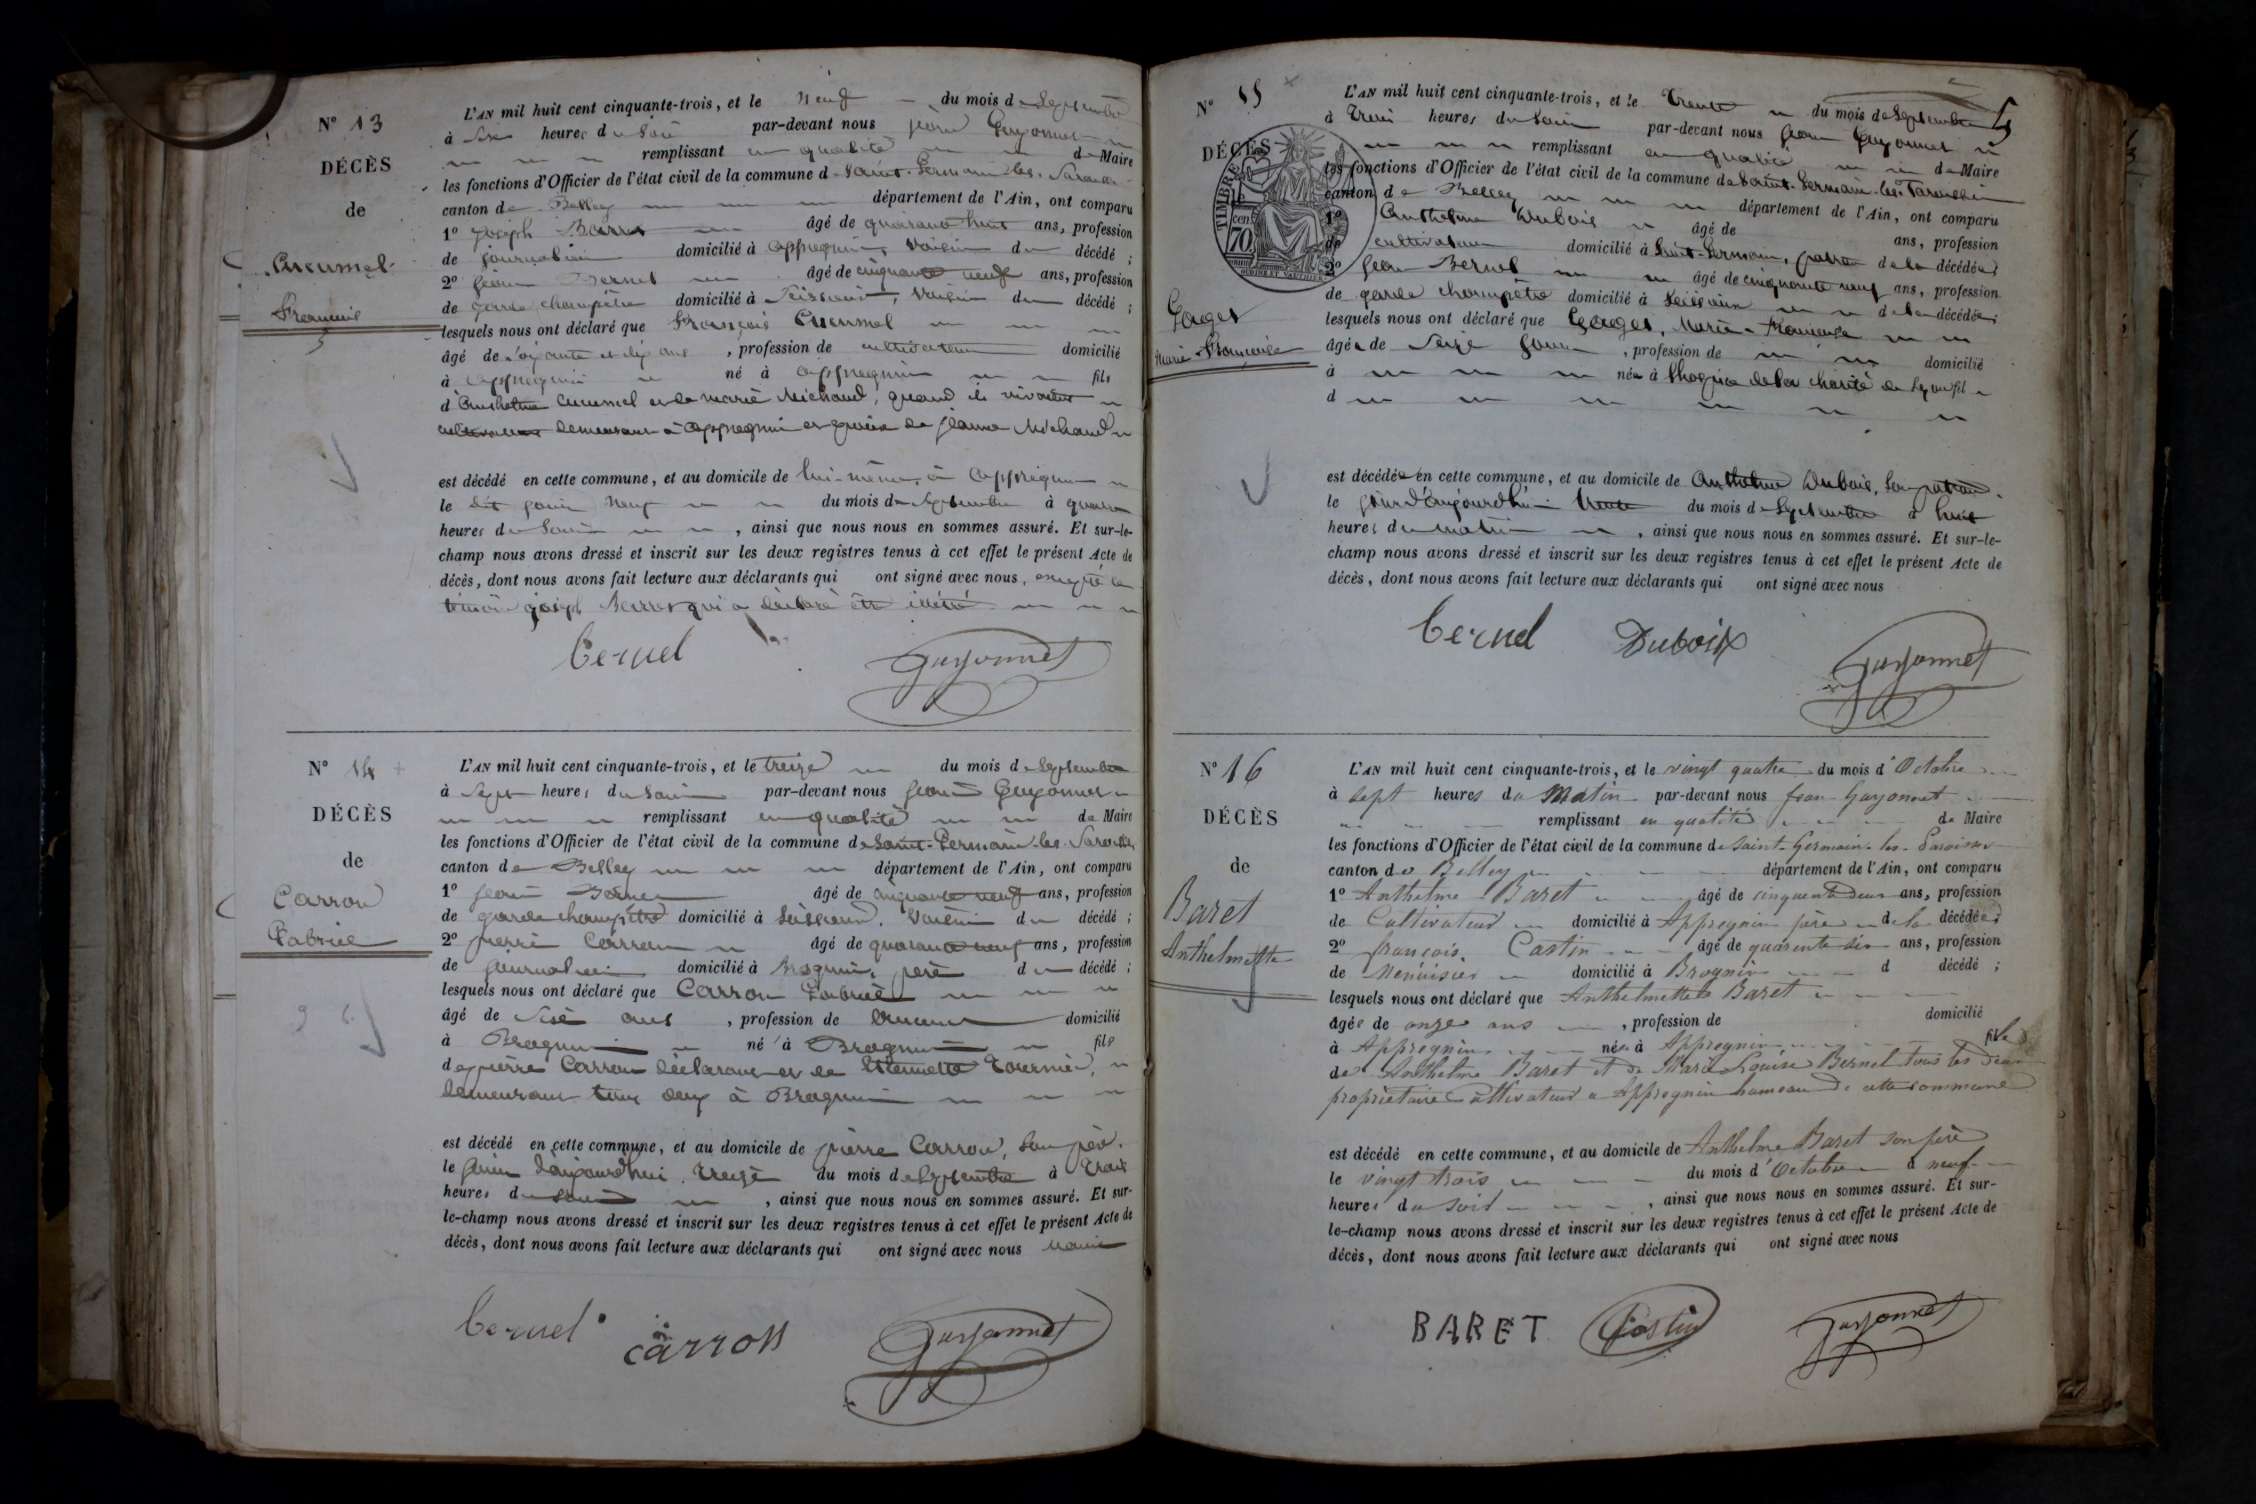 N° 13
DÉCÈS
de
Cucumel
François
L'AN mil huit cent cinquante-trois, et le Neuf du mois de Septembre
à Six heures du Soir par-devant nous jean Guyonnet
remplissant en qualité de Maire
les fonctions d'Officier de l'état civil de la commune de Saint-Germain-les-Paroisses
canton de Belley département de l'Ain, ont comparu
1° joseph âgé de quarante huit ans, profession
de journalier domicilié à Appregnin, voisin du décédé ;
2° jean Bernel âgé de cinquante neuf ans, profession
de garde champêtre domicilié à Seissieux, voisin du décédé ;
lesquels nous ont déclaré que François Cucumel
âgé de Soixante et dix ans , profession de cultivateur domicilié
à Appregnin né à Appregnin fils
d'Anthelme Cucumel et de marie Michaud, quand ils vivaient
demeurant à Appregnin et époux de jeanne Michaud
est décédé en cette commune, et au domicile de lui-même, à Appregnin
le dit jour Neuf du mois de Septembre à quatre
heures du Soir , ainsi que nous nous en sommes assuré. Et sur-le-
champ nous avons dressé et inscrit sur les deux registres tenus à cet effet le présent Acte de
décès, dont nous avons fait lecture aux déclarants qui ont signé avec nous, excepté le
témoin joseph qui a déclaré être illétré
Bernel Guyonnet
N° 14
DÉCÈS
de
Carron
Fabrice
L'AN mil huit cent cinquante-trois, et le treize du mois de Septembre
à Sept heures du Soir par-devant nous jean Guyonnet
remplissant en qualité de Maire
les fonctions d'Officier de l'état civil de la commune de Saint-Germain-les-Paroisses
canton de Belley département de l'Ain, ont comparu
1° jean Bernel âgé de cinquante neuf ans, profession
de garde champêtre domicilié à Seissieux, voisin du décédé ;
2° pierre Carron âgé de quarante neuf ans, profession
de journalier domicilié à Brognin, père du décédé ;
lesquels nous ont déclaré que Carron Fabrice
âgé de ans , profession de aucune domicilié
à Brognin né à Brognin fils
de pierre Carron déclarant et de Tournier,
demeurant tous deux à Brognin
est décédé en cette commune, et au domicile de pierre Carron, son père.
le jour d'aujourd'hui treize du mois de Septembre à trois
heures du Soir , ainsi que nous nous en sommes assuré. Et sur-
le-champ nous avons dressé et inscrit sur les deux registres tenus à cet effet le présent Acte de
décès, dont nous avons fait lecture aux déclarants qui ont signé avec nous Maire
Bernel carron Guyonnet
5
N° 15
DÉCÈS
de
TIMBRE
70
Gages
Marie Françoise
L'AN mil huit cent cinquante-trois, et le trente du mois de Septembre
à trois heures du Soir par-devant nous jean Guyonnet
remplissant en qualité de Maire
les fonctions d'Officier de l'état civil de la commune de Saint-Germain-les-Paroisses
canton de Belley département de l'Ain, ont comparu
1° Anthelme Dubois âgé de ans, profession
de cultivateur domicilié à Saint-Germain, patron de la décédée ;
2° jean Bernel âgé de cinquante neuf ans, profession
de garde champêtre domicilié à Seissieux de la décédée ;
lesquels nous ont déclaré que Gages, Marie-Françoise
âgée de Seize jours , profession de domicilié
à née à l'hospice de la charité de Lyon fil
d
est décédée en cette commune, et au domicile de Anthelme Dubois, son patron.
le jour d'aujourd'hui trente du mois de Septembre à huit
heures du matin , ainsi que nous nous en sommes assuré. Et sur-le-
champ nous avons dressé et inscrit sur les deux registres tenus à cet effet le présent Acte de
décès, dont nous avons fait lecture aux déclarants qui ont signé avec nous
Bernel Duboix Guyonnet
N° 16
DÉCÈS
de
Baret
Anthelmette
L'AN mil huit cent cinquante-trois, et le vingt quatre du mois d'Octobre
à sept heures du Matin par-devant nous jean Guyonnet
remplissant en qualité de Maire
les fonctions d'Officier de l'état civil de la commune de Saint-Germain-les-Paroisses
canton de Belley département de l'Ain, ont comparu
1° Anthelme Baret âgé de cinquante deux ans, profession
de Cultivateur domicilié à Appregnin père de la décédée ;
2° françois Castin âgé de quarente six ans, profession
de Menuisier domicilié à Brognin d décédé ;
lesquels nous ont déclaré que Anthelmette Baret
âgée de onze ans , profession de domicilié
à Appregnin née à Appregnin fille
de Anthelme Baret et de Marie Louise Bernel tous les deux
propriétaire Cultivateur a Appregnin hameau de cette commune
est décédé en cette commune, et au domicile de Anthelme Baret son père
le vingt trois du mois d'Octobre à neuf
heures du soir , ainsi que nous nous en sommes assuré. Et sur-
le-champ nous avons dressé et inscrit sur les deux registres tenus à cet effet le présent Acte de
décès, dont nous avons fait lecture aux déclarants qui ont signé avec nous
BARET Castin Guyonnet